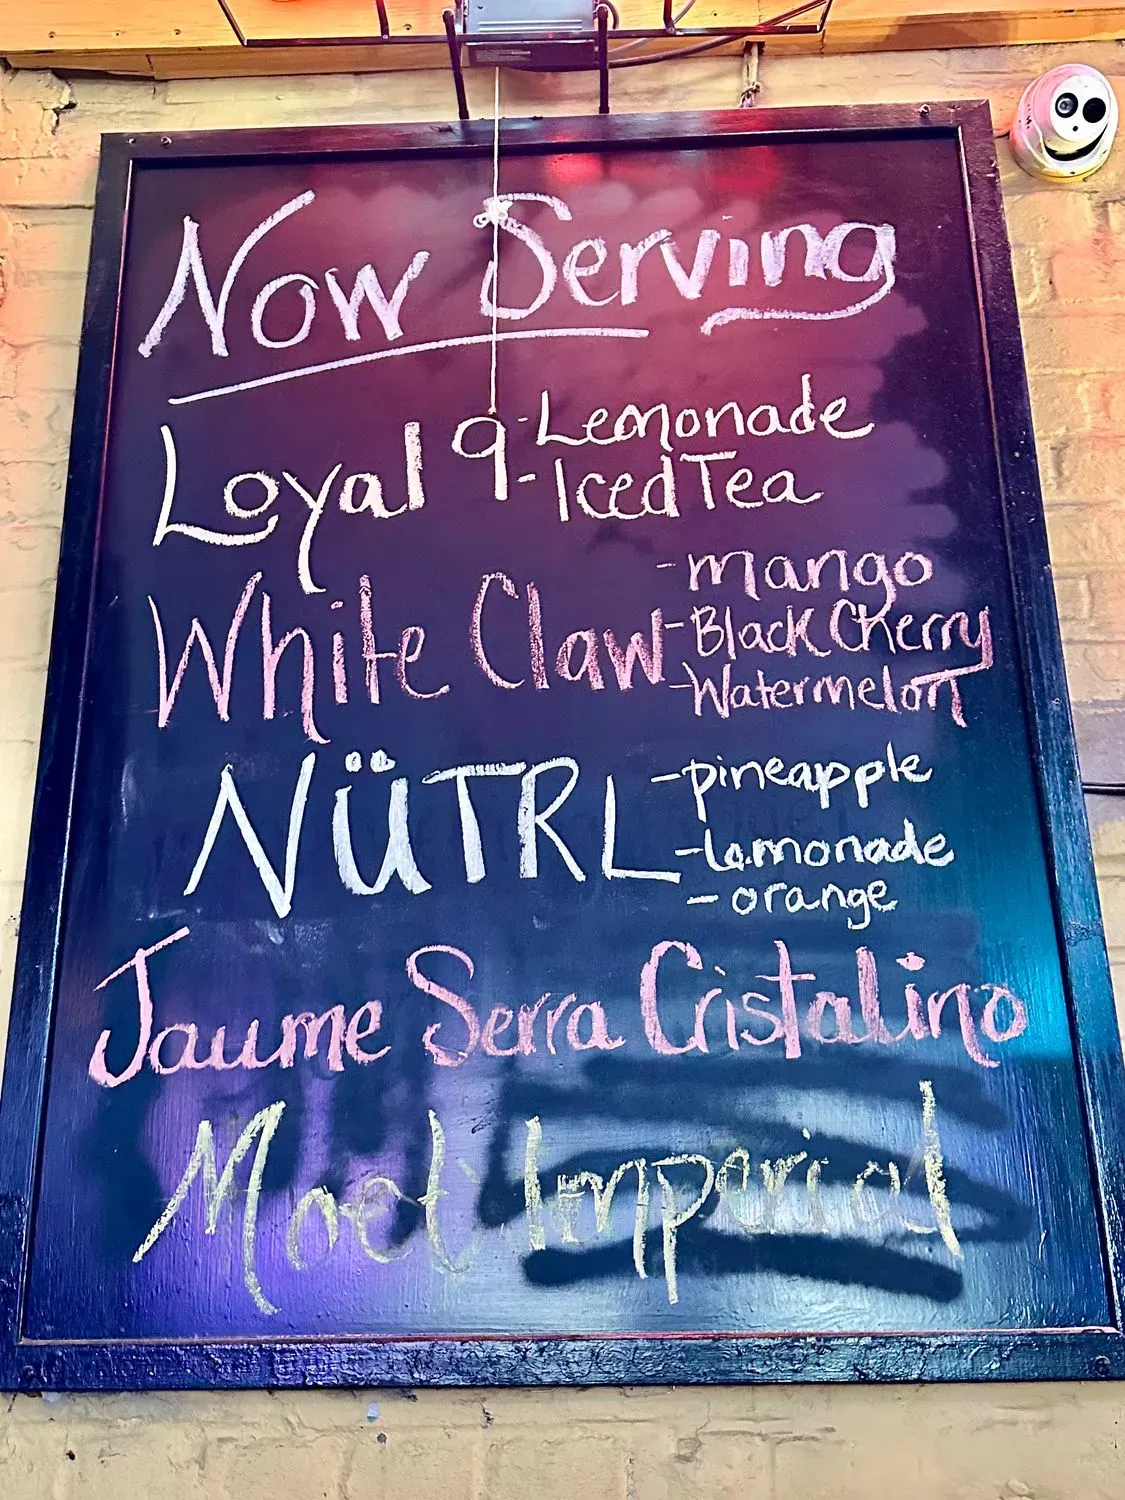 Now Serving
Loyal 9 - Lemonade
- Iced Tea
White Claw - mango
- Black Cherry
- Watermelon
NÜTRL - pineapple
- Lemonade
- orange
Jaume Serra Cristalino
Moet Imperial